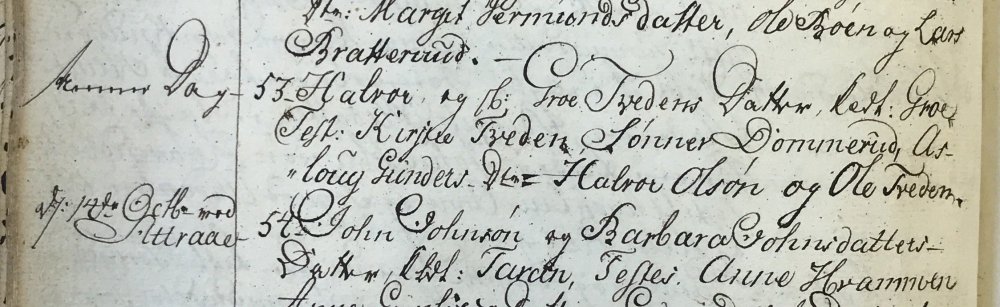 Dtr: Margit Germundsdatter, Ole Böen og Lars
Bratterud. –
samme Dag – 53. Halvor og sb: Groe Tvedens Datter, kldt: Groe,
Test: Kirstie Tveden, Sønner Dommerud, As-
loug Gunders Dtr = Halvor Olsøn og Ole Tveden.
d: 14de Octb: ved 54. John Johnsøn og Barbara Johnsdatters
Attraae Datter, kldt: Taran, Testes. Anne Hrammen
Anne